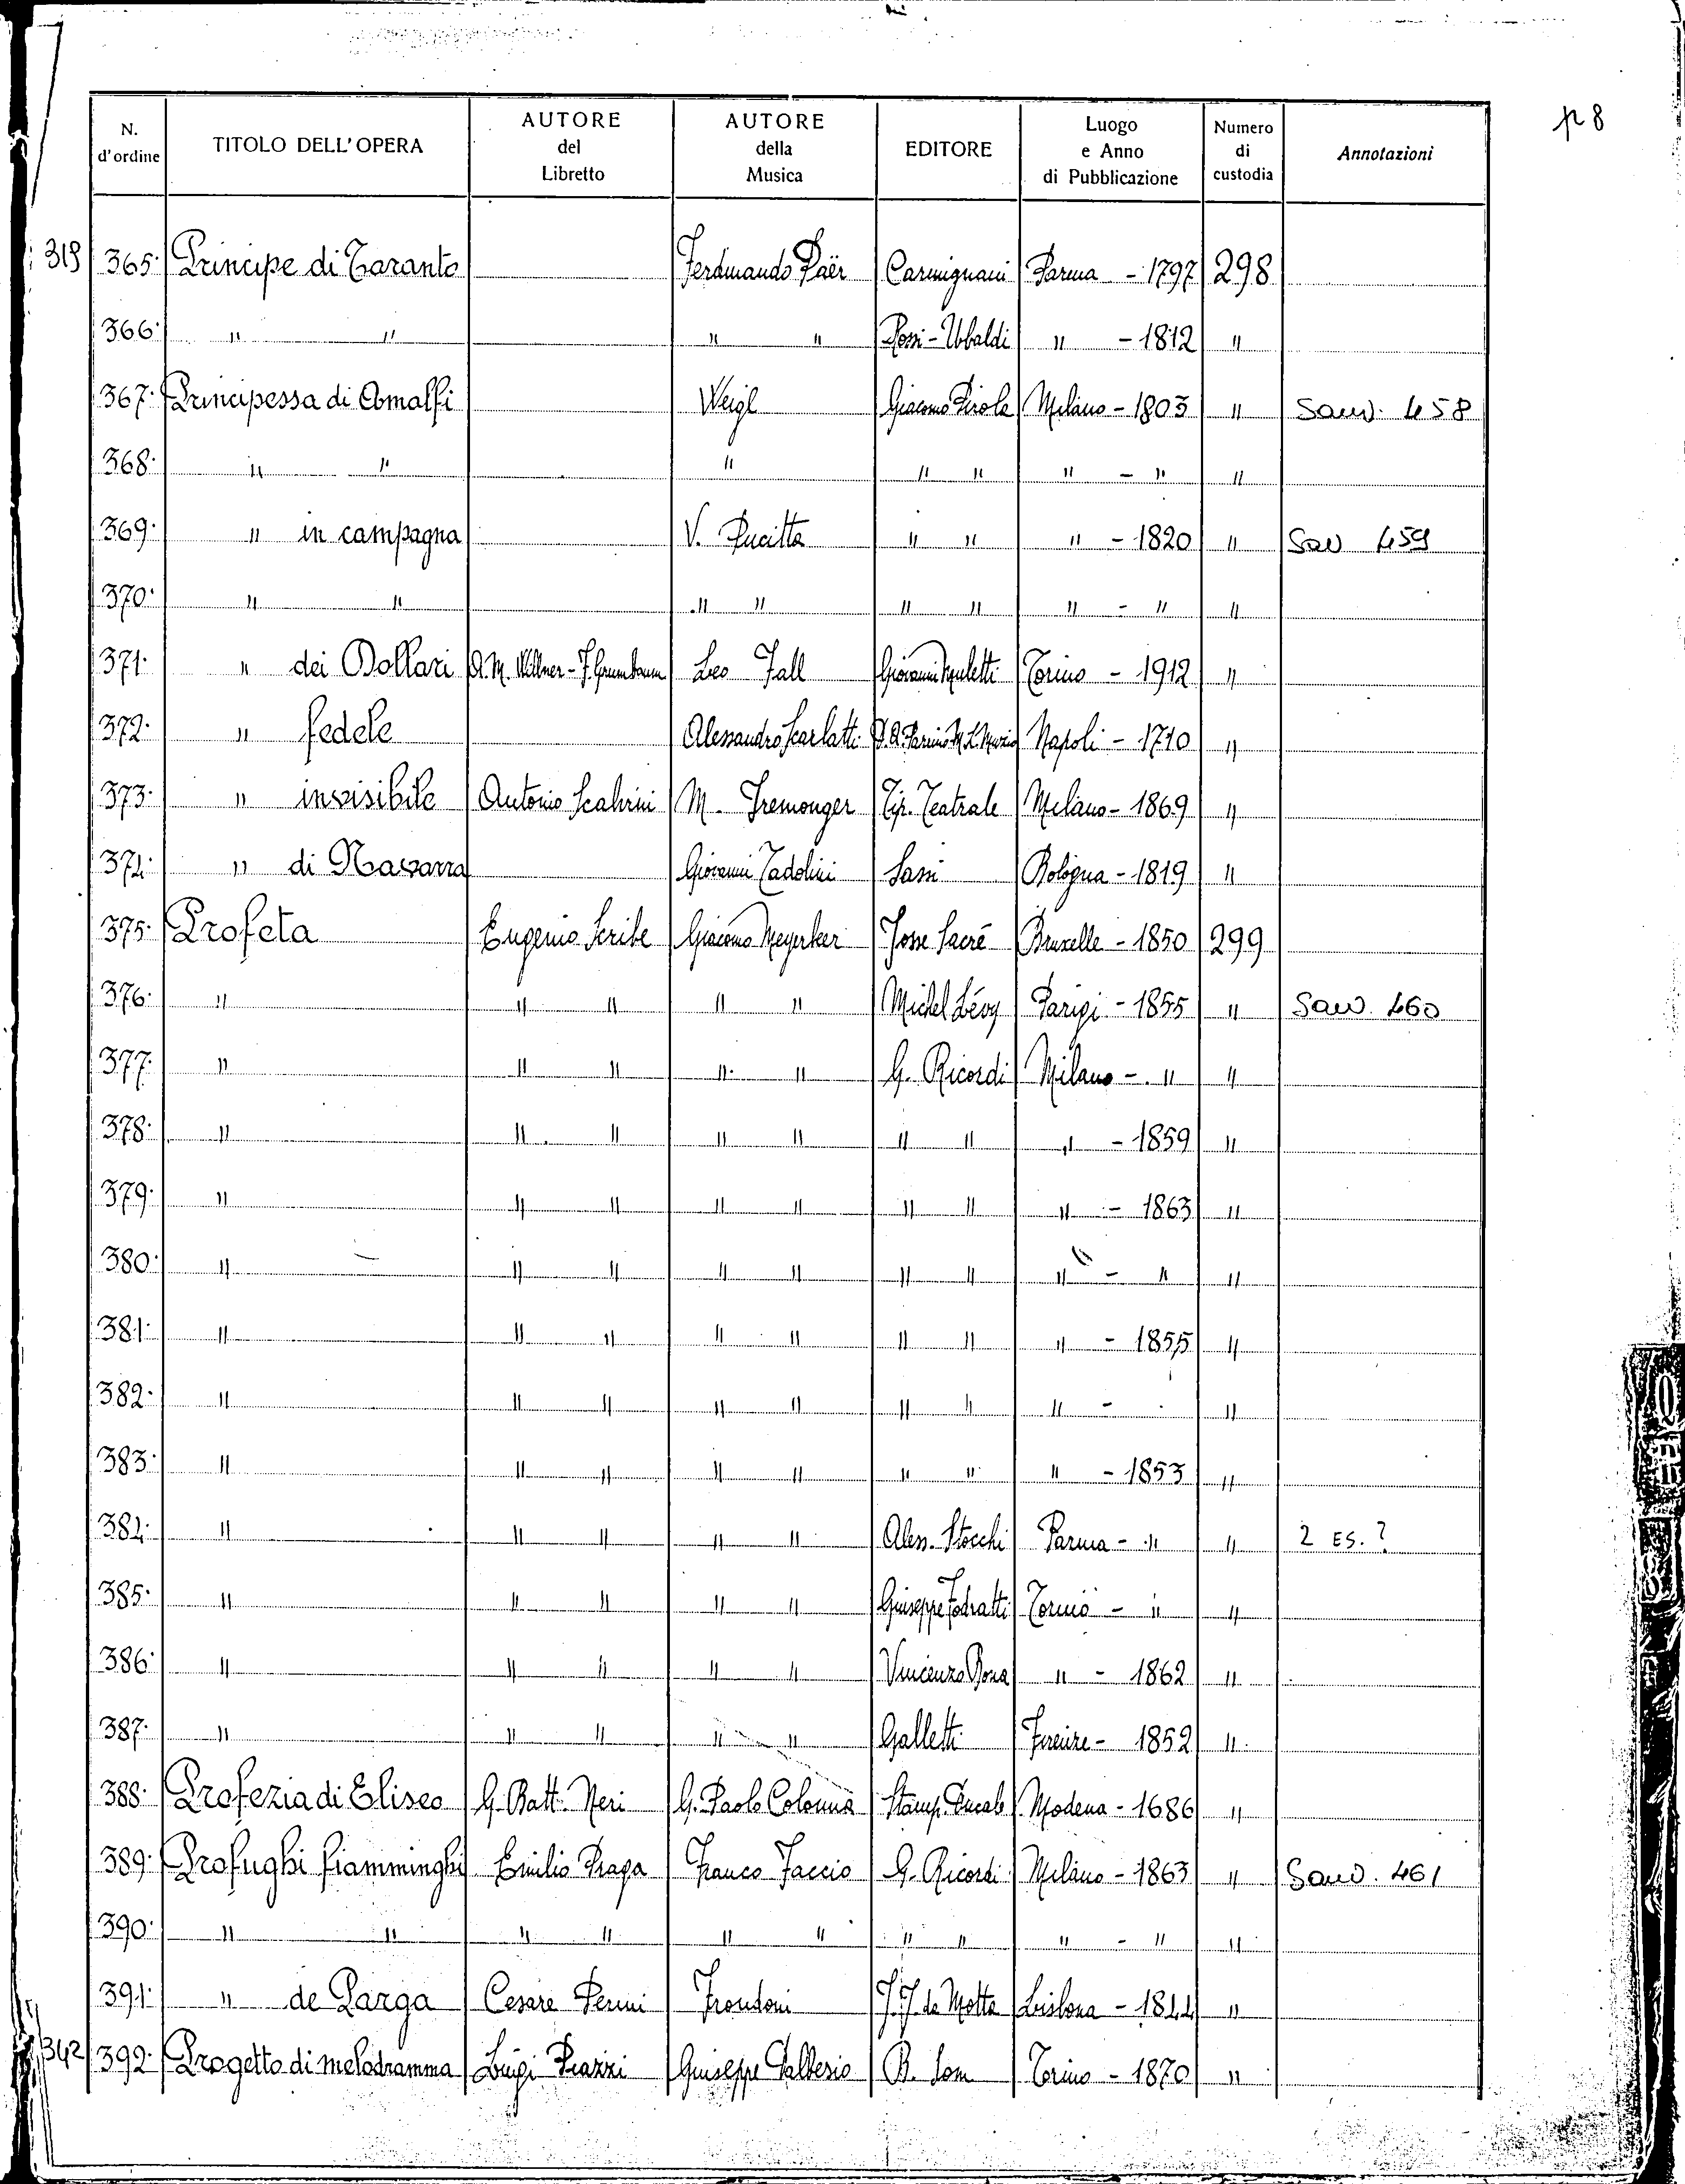 p 8
N. d'ordine TITOLO DELL'OPERA AUTORE del Libretto AUTORE della Musica EDITORE Luogo e Anno di Pubblicazione Numero di custodia Annotazioni
319 365· Principe di Taranto Ferdinando Paër Carmignani Parma - 1797 298
366· " " " " Rossi-Ubaldi " - 1812 "
367· Principessa di Amalfi Weigl Giacomo Pirola Milano - 1803 " Sarv. 458
368· " " " " " " - " "
369· " in campagna V. Pucitta " " " - 1820 " Sav 459
370· " " " " " " " - " "
371· " dei Dollari A. M. Willner - F. Grumbaum Leo Fall Giovanni Torino - 1912 "
372· " fedele Alessandro Scarlatti Napoli - 1710 "
373· " invisibile Antonio Scalvini M. Tremonger Tip. Teatrale Milano - 1869 "
374· " di Navarra Giovanni Tadolini Sassi Bologna - 1819 "
375· Profeta Eugenio Scribe Giacomo Meyerbeer Josse Sacré Bruxelle - 1850 299
376· " " " " " Michel Lévy Parigi - 1855 " Sarv. 460
377· " " " " " G. Ricordi Milano - " "
378· " " " " " " " " - 1859 "
379· " " " " " " " " - 1863 "
380· " " " " " " " " - " "
381· " " " " " " " " - 1855 "
382· " " " " " " " " - "
383· " " " " " " " " - 1853 "
384· " " " " " Aless. Stocchi Parma - " " 2 ES. ?
385· " " " " " Giuseppe Fodratti Torino - " "
386· " " " " " Vincenzo Bona " - 1862 "
387· " " " " " Galletti Firenze - 1852 "
388· Profezia di Eliseo G. Batt. Neri G. Paolo Colonna Stamp. Ducale Modena - 1686 "
389· Profughi fiamminghi Emilio Praga Franco Faccio G. Ricordi Milano - 1863 " Sarv. 461
390· " " " " " " " " " - " "
391· " de Parga Cesare Perini Frondoni J. J. da Motta Lisbona - 1844 "
342 392· Progetto di melodramma Luigi Giuseppe Dalbesio B. Som Torino - 1870 "